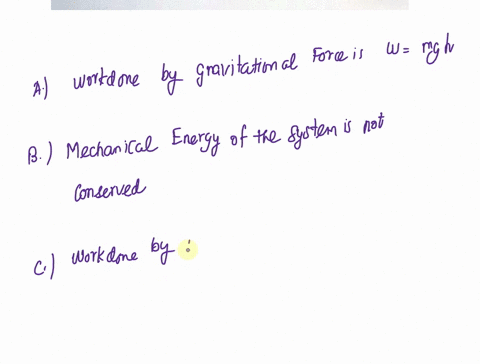 A.) Workdone by gravitational Force is W= mgh
B.) Mechanical Energy of the system is not
Conserved
C.) Workdone by